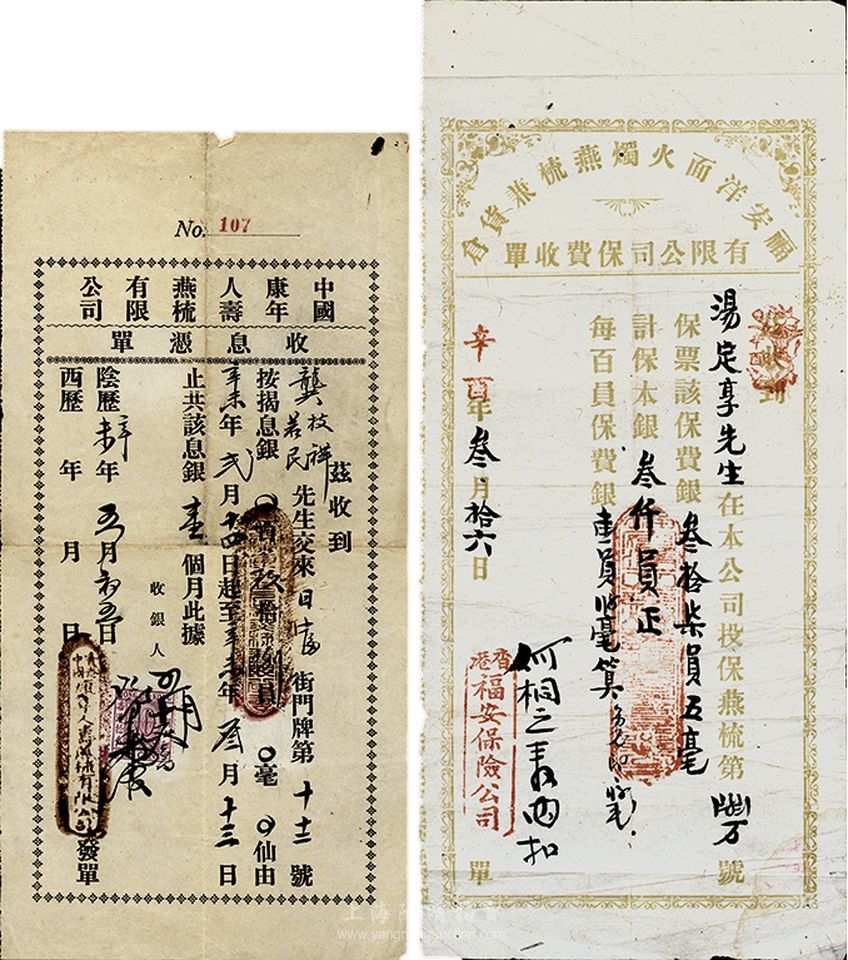 No. 107
中國康年人壽燕梳有限公司
收息憑單
茲收到
龔枝祥
若民
先生交來日富街門牌第十十二號
按揭息銀〇百玖拾員〇毫〇仙由
辛未年弍月十四日起至辛未年叁月十三日
止共該息銀壹個月此據
陰歷辛未年五月初五日
收銀人
西歷 年 月 日
發單
福安洋面火燭燕梳兼貨倉
有限公司保費收單
茲收到
湯定享先生在本公司投保燕梳第 號
保票該保費銀叁拾柒員五毫
計保本銀叁仟員正
每百員保費銀壹員 毫算
辛酉年叁月拾六日
香港福安保險公司
何桐之 扣
單